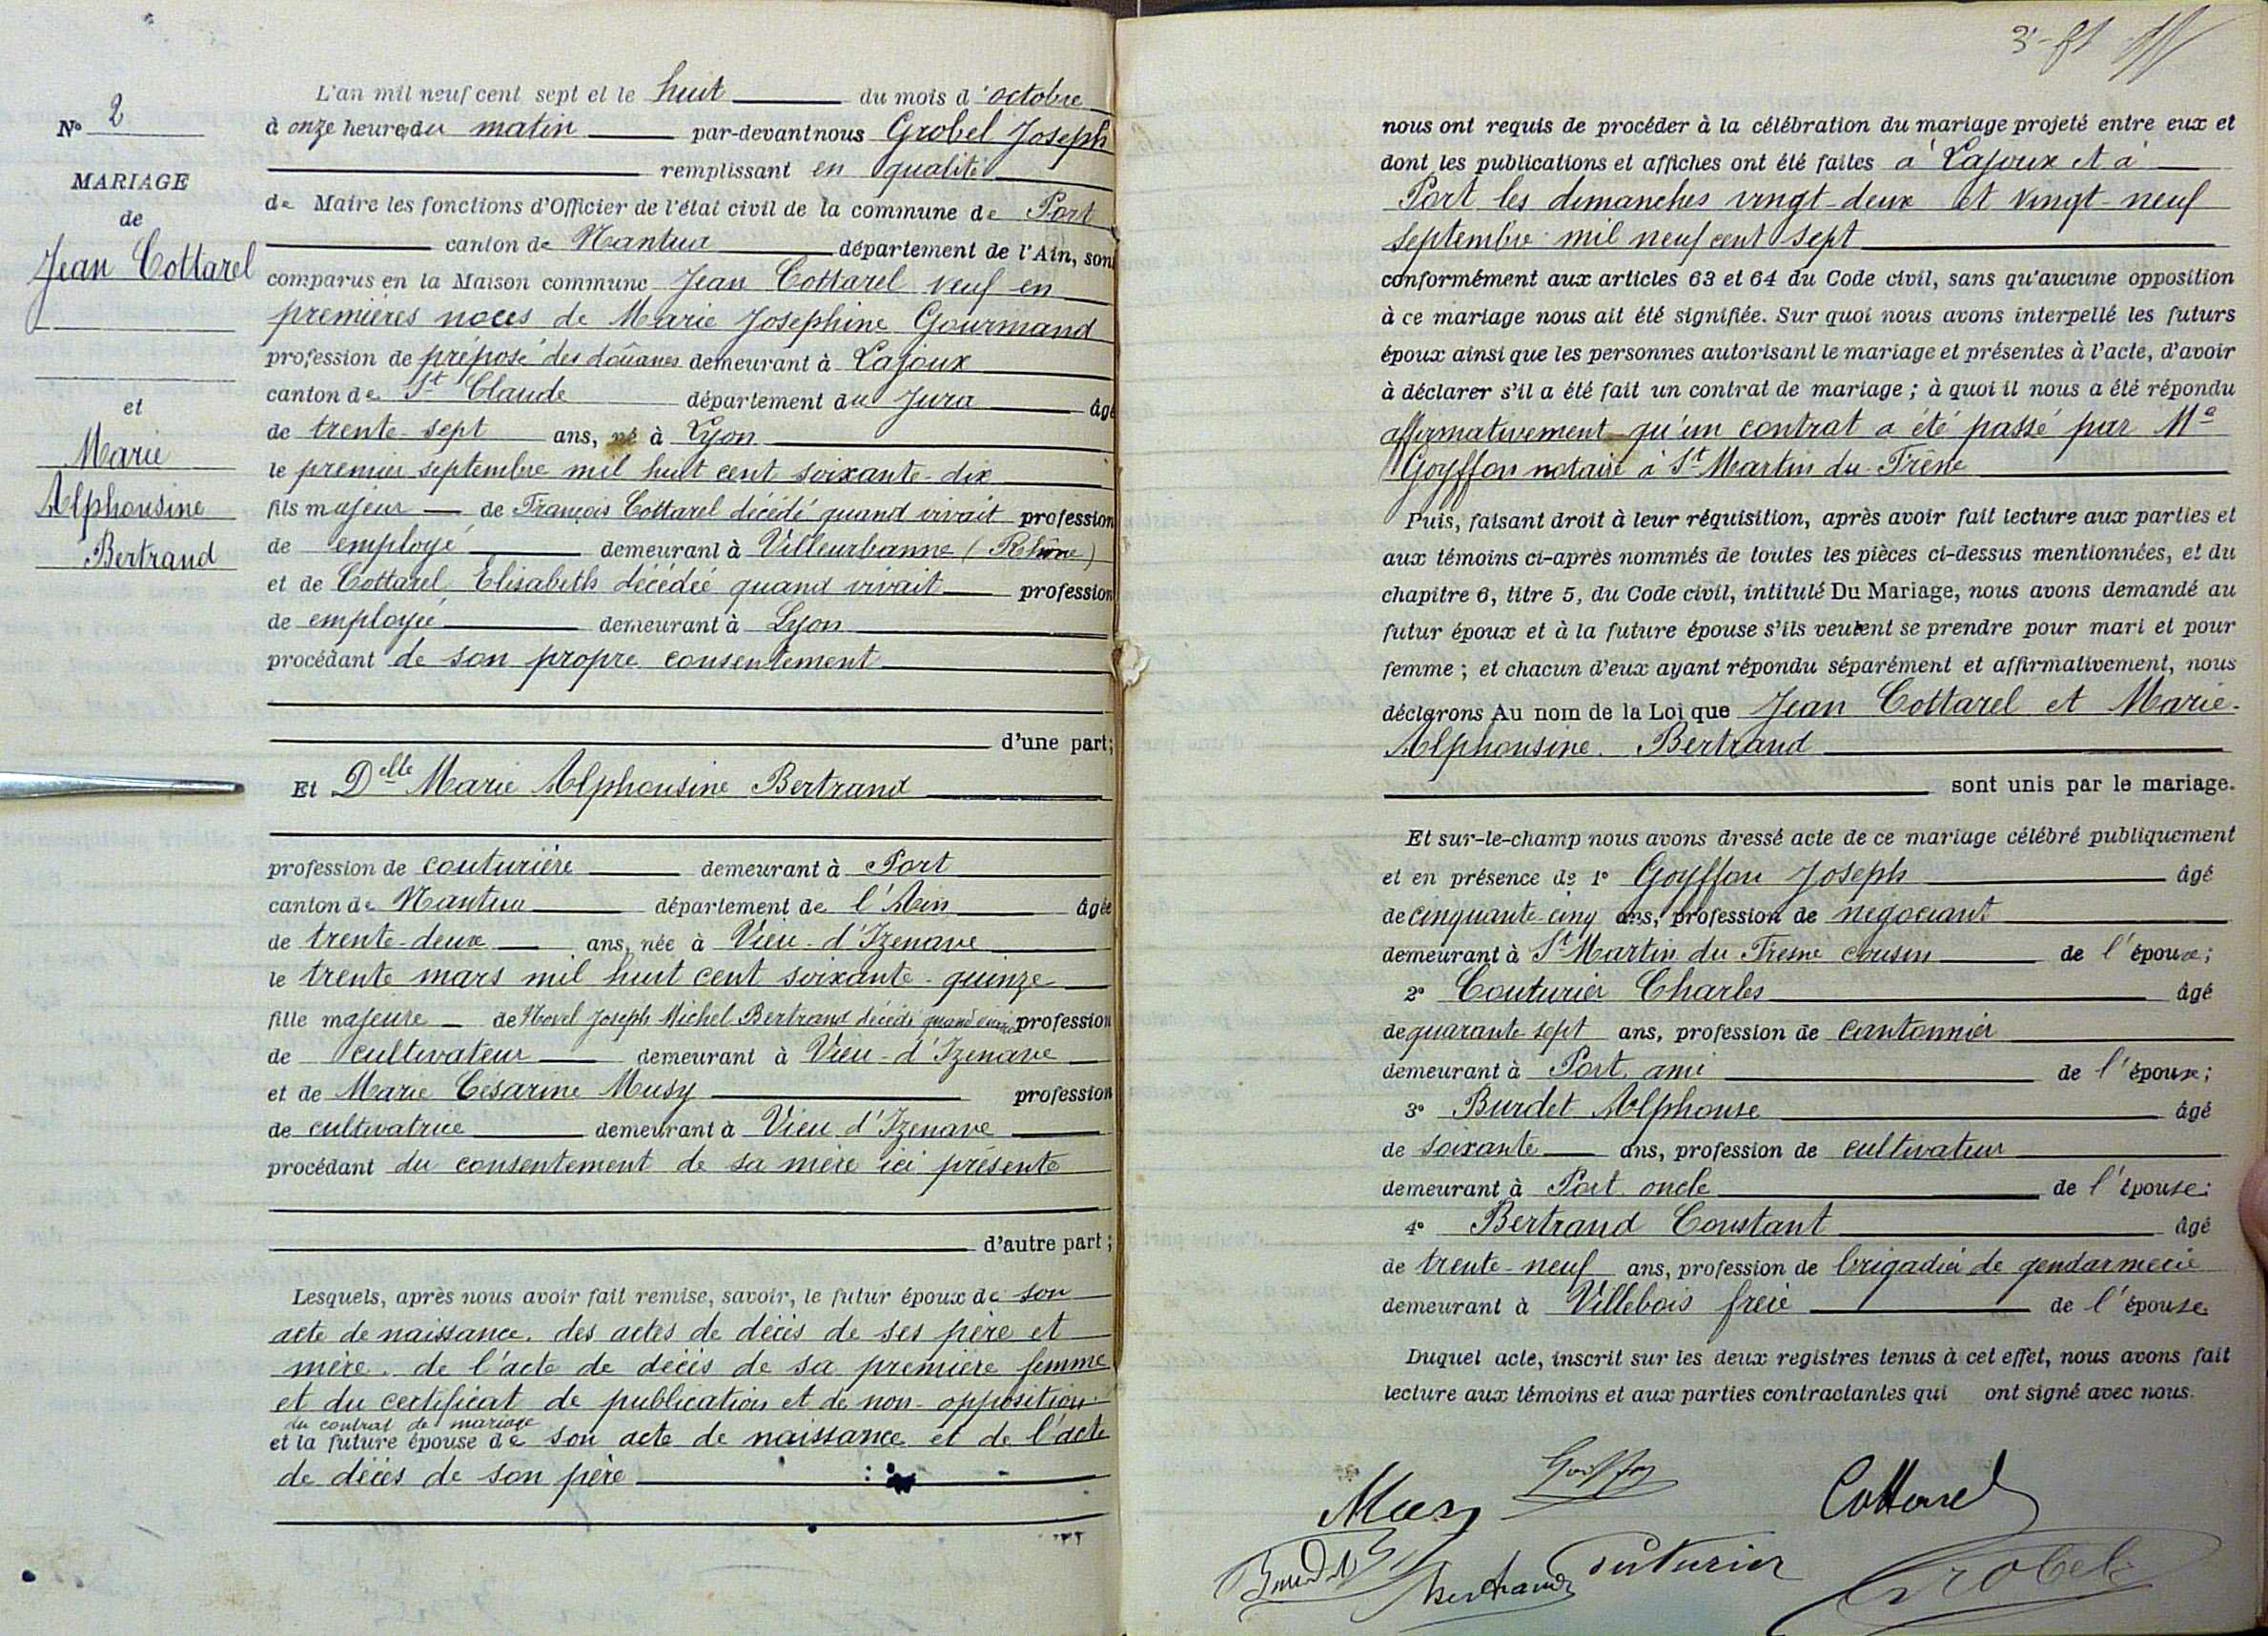 N° 2
MARIAGE
de
Jean Cottarel
et
Marie
Alphonsine
Bertrand
L'an mil neuf cent sept et le huit du mois d'octobre
à onze heures du matin par-devant nous Grobel Joseph
remplissant en qualité
de Maire les fonctions d'Officier de l'état civil de la commune de Port
canton de Nantua département de l'Ain, son
comparus en la Maison commune Jean Cottarel veuf en
premières noces de Marie Josephine Gourmand
profession de préposé des douanes demeurant à Lajoux
canton de St Claude département du Jura âgé
de trente-sept ans, né à Lyon
le premier septembre mil huit cent soixante-dix
fils majeur de François Cottarel décédé quand vivait profession
de employé demeurant à Villeurbanne (Rhône)
et de Cottarel Elisabeth décédée quand vivait profession
de employée demeurant à Lyon
procédant de son propre consentement
d'une part;
Et Delle Marie Alphonsine Bertrand
profession de couturière demeurant à Port
canton de Nantua département de l'Ain âgée
de trente-deux ans, née à Vieu-d'Izenave
le trente mars mil huit cent soixante-quinze
fille majeure de Joseph Michel Bertrand décédé quand vivait profession
de cultivateur demeurant à Vieu-d'Izenave
et de Marie Césarine Musy profession
de cultivatrice demeurant à Vieu d'Izenave
procédant du consentement de sa mère ici présente
d'autre part;
Lesquels, après nous avoir fait remise, savoir, le futur époux de son
acte de naissance. des actes de décès de ses père et
mère. de l'acte de décès de sa première femme
et du certificat de publication et de non-opposition
du contrat de mariage
et la future épouse de son acte de naissance et de l'acte
de décès de son père
nous ont requis de procéder à la célébration du mariage projeté entre eux et
dont les publications et affiches ont été faites à Lajoux et à
Port les dimanches vingt-deux et vingt-neuf
septembre mil neuf cent sept
conformément aux articles 63 et 64 du Code civil, sans qu'aucune opposition
à ce mariage nous ait été signifiée. Sur quoi nous avons interpellé les futurs
époux ainsi que les personnes autorisant le mariage et présentes à l'acte, d'avoir
à déclarer s'il a été fait un contrat de mariage; à quoi il nous a été répondu
affirmativement qu'un contrat a été passé par Me
Goyffon notaire à St Martin du Frêne
Puis, faisant droit à leur réquisition, après avoir fait lecture aux parties et
aux témoins ci-après nommés de toutes les pièces ci-dessus mentionnées, et du
chapitre 6, titre 5, du Code civil, intitulé Du Mariage, nous avons demandé au
futur époux et à la future épouse s'ils veulent se prendre pour mari et pour
femme; et chacun d'eux ayant répondu séparément et affirmativement, nous
déclarons Au nom de la Loi que Jean Cottarel et Marie-
Alphonsine Bertrand
sont unis par le mariage.
Et sur-le-champ nous avons dressé acte de ce mariage célébré publiquement
et en présence de 1° Goyffon Joseph âgé
de cinquante-cinq ans, profession de négociant
demeurant à St Martin du Fresne cousin de l'épouse;
2° Couturier Charles âgé
de quarante sept ans, profession de cantonnier
demeurant à Port ami de l'épouse;
3° Burdet Alphonse âgé
de soixante ans, profession de cultivateur
demeurant à Port oncle de l'épouse;
4° Bertrand Constant âgé
de trente-neuf ans, profession de brigadier de gendarmerie
demeurant à Villebois frère de l'épouse.
Duquel acte, inscrit sur les deux registres tenus à cet effet, nous avons fait
lecture aux témoins et aux parties contractantes qui ont signé avec nous.
Goyffon
Musy Cottarel
Burdet Bertrand Couturier Grobel